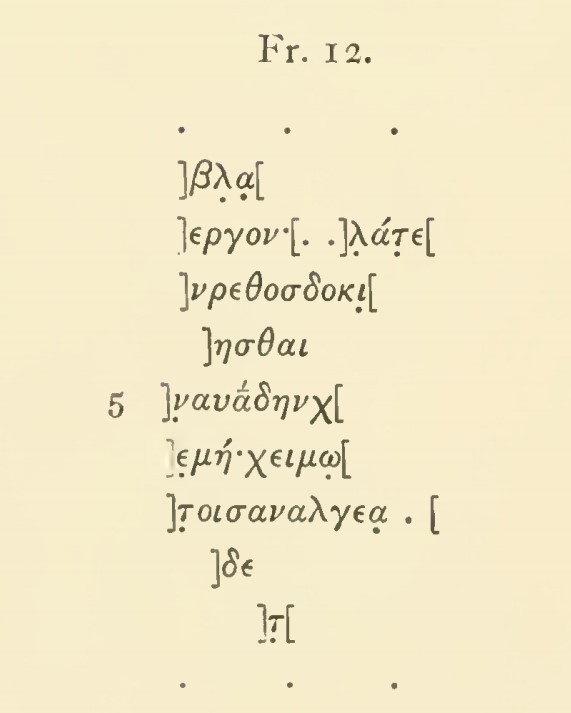 Fr. 12.
. . .
]βλ̣α̣[
]εργον·[. .]λ̣άτ̣ε[
]νρεθοσδοκι̣[
]ησθαι
5 ]ν̣αυᾱ́δηνχ[
]ε̣μή·χειμω̣[
]τ̣οισαναλγεα̣ . [
]δε
]τ̣[
. . .